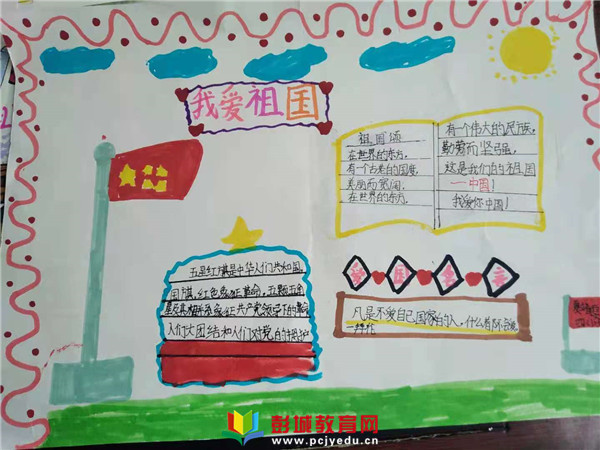 我爱祖国
祖国颂
在世界的东方,
有一个古老的国度,
美丽而宽阔,
在世界的东方,
有一个伟大的民族,
勤劳而坚强,
这是我们的祖国
——中国!
我爱你中国!
五星红旗是中华人们共和国
国旗,红色象征革命,五颗五角
星及其相
人们大团结和人们对党的拥护
爱国
凡是不爱自己国家的人,什么
彭城教育网
www.pcjyedu.cn